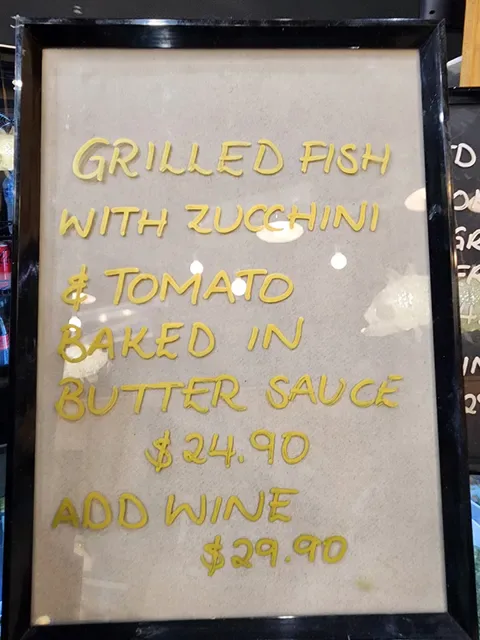 GRILLED FISH
WITH ZUCCHINI
& TOMATO
BAKED IN
BUTTER SAUCE
$24.90
ADD WINE
$29.90